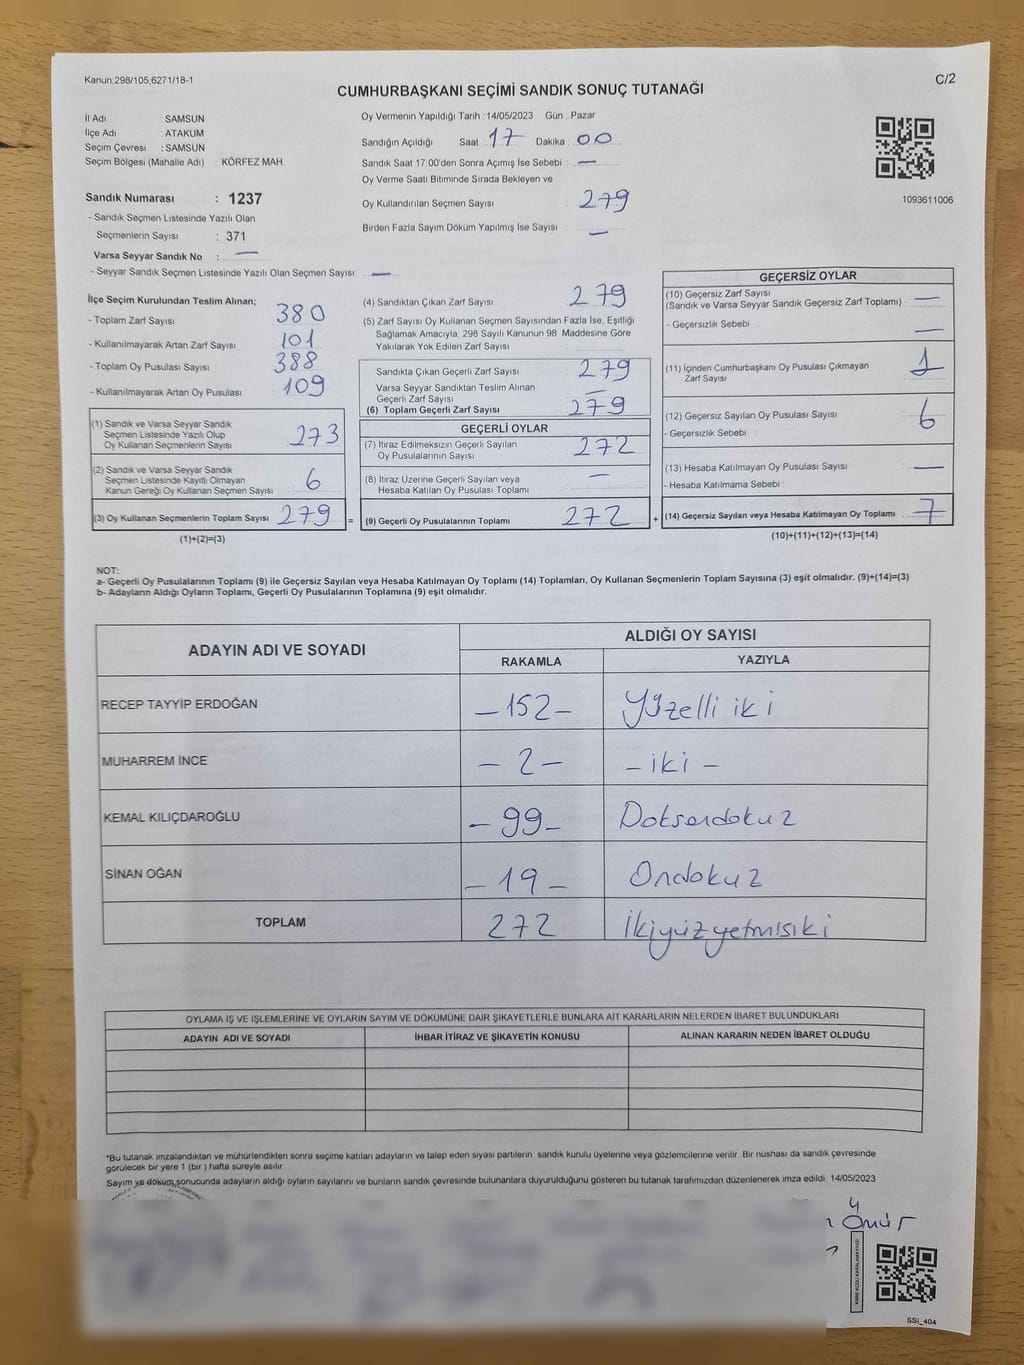 Kanun;298/105;6271/18-1
C/2
CUMHURBAŞKANI SEÇİMİ SANDIK SONUÇ TUTANAĞI
İl Adı : SAMSUN
İlçe Adı : ATAKUM
Seçim Çevresi : SAMSUN
Seçim Bölgesi (Mahalle Adı) : KÖRFEZ MAH.
Sandık Numarası : 1237
- Sandık Seçmen Listesinde Yazılı Olan
Seçmenlerin Sayısı : 371
Varsa Seyyar Sandık No : —
- Seyyar Sandık Seçmen Listesinde Yazılı Olan Seçmen Sayısı: —
Oy Vermenin Yapıldığı Tarih : 14/05/2023 Gün : Pazar
Sandığın Açıldığı Saat : 17 Dakika : 00
Sandık Saat 17:00'den Sonra Açımış İse Sebebi : —
Oy Verme Saati Bitiminde Sırada Bekleyen ve
Oy Kullandırılan Seçmen Sayısı : 279
Birden Fazla Sayım Döküm Yapılmış İse Sayısı : —
1093611006
İlçe Seçim Kurulundan Teslim Alınan;
- Toplam Zarf Sayısı 380
- Kullanılmayarak Artan Zarf Sayısı 101
- Toplam Oy Pusulası Sayısı 388
- Kullanılmayarak Artan Oy Pusulası 109
(1) Sandık ve Varsa Seyyar Sandık
Seçmen Listesinde Yazılı Olup
Oy Kullanan Seçmenlerin Sayısı 273
(2) Sandık ve Varsa Seyyar Sandık
Seçmen Listesinde Kayıtlı Olmayan
Kanun Gereği Oy Kullanan Seçmen Sayısı 6
(3) Oy Kullanan Seçmenlerin Toplam Sayısı 279 =
(1)+(2)=(3)
(4) Sandıktan Çıkan Zarf Sayısı 279
(5) Zarf Sayısı Oy Kullanan Seçmen Sayısından Fazla İse, Eşitliği
Sağlamak Amacıyla; 298 Sayılı Kanunun 98. Maddesine Göre
Yakılarak Yok Edilen Zarf Sayısı :
Sandıkta Çıkan Geçerli Zarf Sayısı 279
Varsa Seyyar Sandıktan Teslim Alınan
Geçerli Zarf Sayısı —
(6) Toplam Geçerli Zarf Sayısı 279
GEÇERLİ OYLAR
(7) İtiraz Edilmeksizin Geçerli Sayılan
Oy Pusulalarının Sayısı 272
(8) İtiraz Üzerine Geçerli Sayılan veya
Hesaba Katılan Oy Pusulası Toplamı —
(9) Geçerli Oy Pusulalarının Toplamı 272 +
GEÇERSİZ OYLAR
(10) Geçersiz Zarf Sayısı
(Sandık ve Varsa Seyyar Sandık Geçersiz Zarf Toplamı) : —
- Geçersizlik Sebebi : —
(11) İçinden Cumhurbaşkanı Oy Pusulası Çıkmayan
Zarf Sayısı 1
(12) Geçersiz Sayılan Oy Pusulası Sayısı : 6
- Geçersizlik Sebebi :
(13) Hesaba Katılmayan Oy Pusulası Sayısı : —
- Hesaba Katılmama Sebebi :
(14) Geçersiz Sayılan veya Hesaba Katılmayan Oy Toplamı : 7
(10)+(11)+(12)+(13)=(14)
NOT:
a- Geçerli Oy Pusulalarının Toplamı (9) ile Geçersiz Sayılan veya Hesaba Katılmayan Oy Toplamı (14) Toplamları, Oy Kullanan Seçmenlerin Toplam Sayısına (3) eşit olmalıdır. (9)+(14)=(3)
b- Adayların Aldığı Oyların Toplamı, Geçerli Oy Pusulalarının Toplamına (9) eşit olmalıdır.
ADAYIN ADI VE SOYADI ALDIĞI OY SAYISI
RAKAMLA YAZIYLA
RECEP TAYYİP ERDOĞAN –152– Yüzelli iki
MUHARREM İNCE – 2 – – iki –
KEMAL KILIÇDAROĞLU – 99 – Doksandokuz
SİNAN OĞAN – 19 – Ondokuz
TOPLAM 272 İkiyüzyetmişiki
OYLAMA İŞ VE İŞLEMLERİNE VE OYLARIN SAYIM VE DÖKÜMÜNE DAİR ŞİKAYETLERLE BUNLARA AİT KARARLARIN NELERDEN İBARET BULUNDUKLARI
ADAYIN ADI VE SOYADI İHBAR İTİRAZ VE ŞİKAYETİN KONUSU ALINAN KARARIN NEDEN İBARET OLDUĞU
*Bu tutanak imzalandıktan ve mühürlendikten sonra seçime katılan adayların ve talep eden siyasi partilerin sandık kurulu üyelerine veya gözlemcilerine verilir. Bir nüshası da sandık çevresinde
görülecek bir yere 1 (bir ) hafta süreyle asılır.
Sayım ve döküm sonucunda adayların aldığı oyların sayılarını ve bunların sandık çevresinde bulunanlara duyurulduğunu gösteren bu tutanak tarafımızdan düzenlenerek imza edildi. 14/05/2023
Ömür
SSI_404